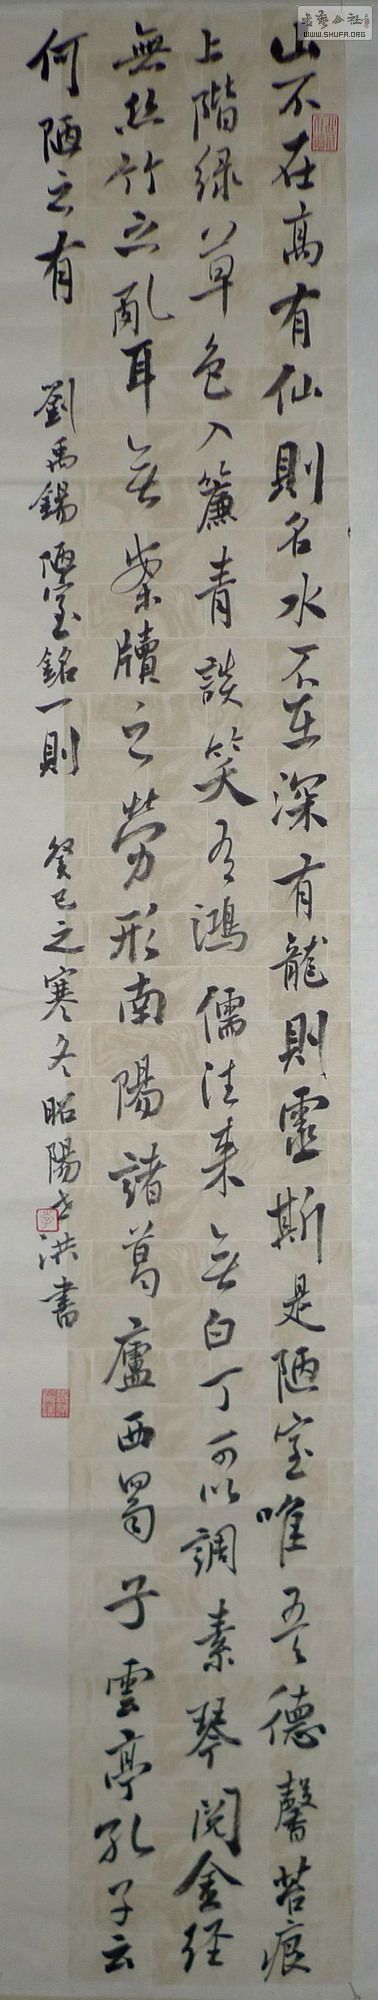 山不在高有仙則名水不在深有龍則靈斯是陋室唯吾德馨苔痕
上階绿草色入簾青談笑有鴻儒往来无白丁可以調素琴閱金经
無丝竹之亂耳无案牘之勞形南陽諸葛廬西蜀子雲亭孔子云
何陋之有
劉禹錫陋室銘一則
癸巳之寒冬昭陽
洪書
書藝公社
WWW.SHUFA.ORG